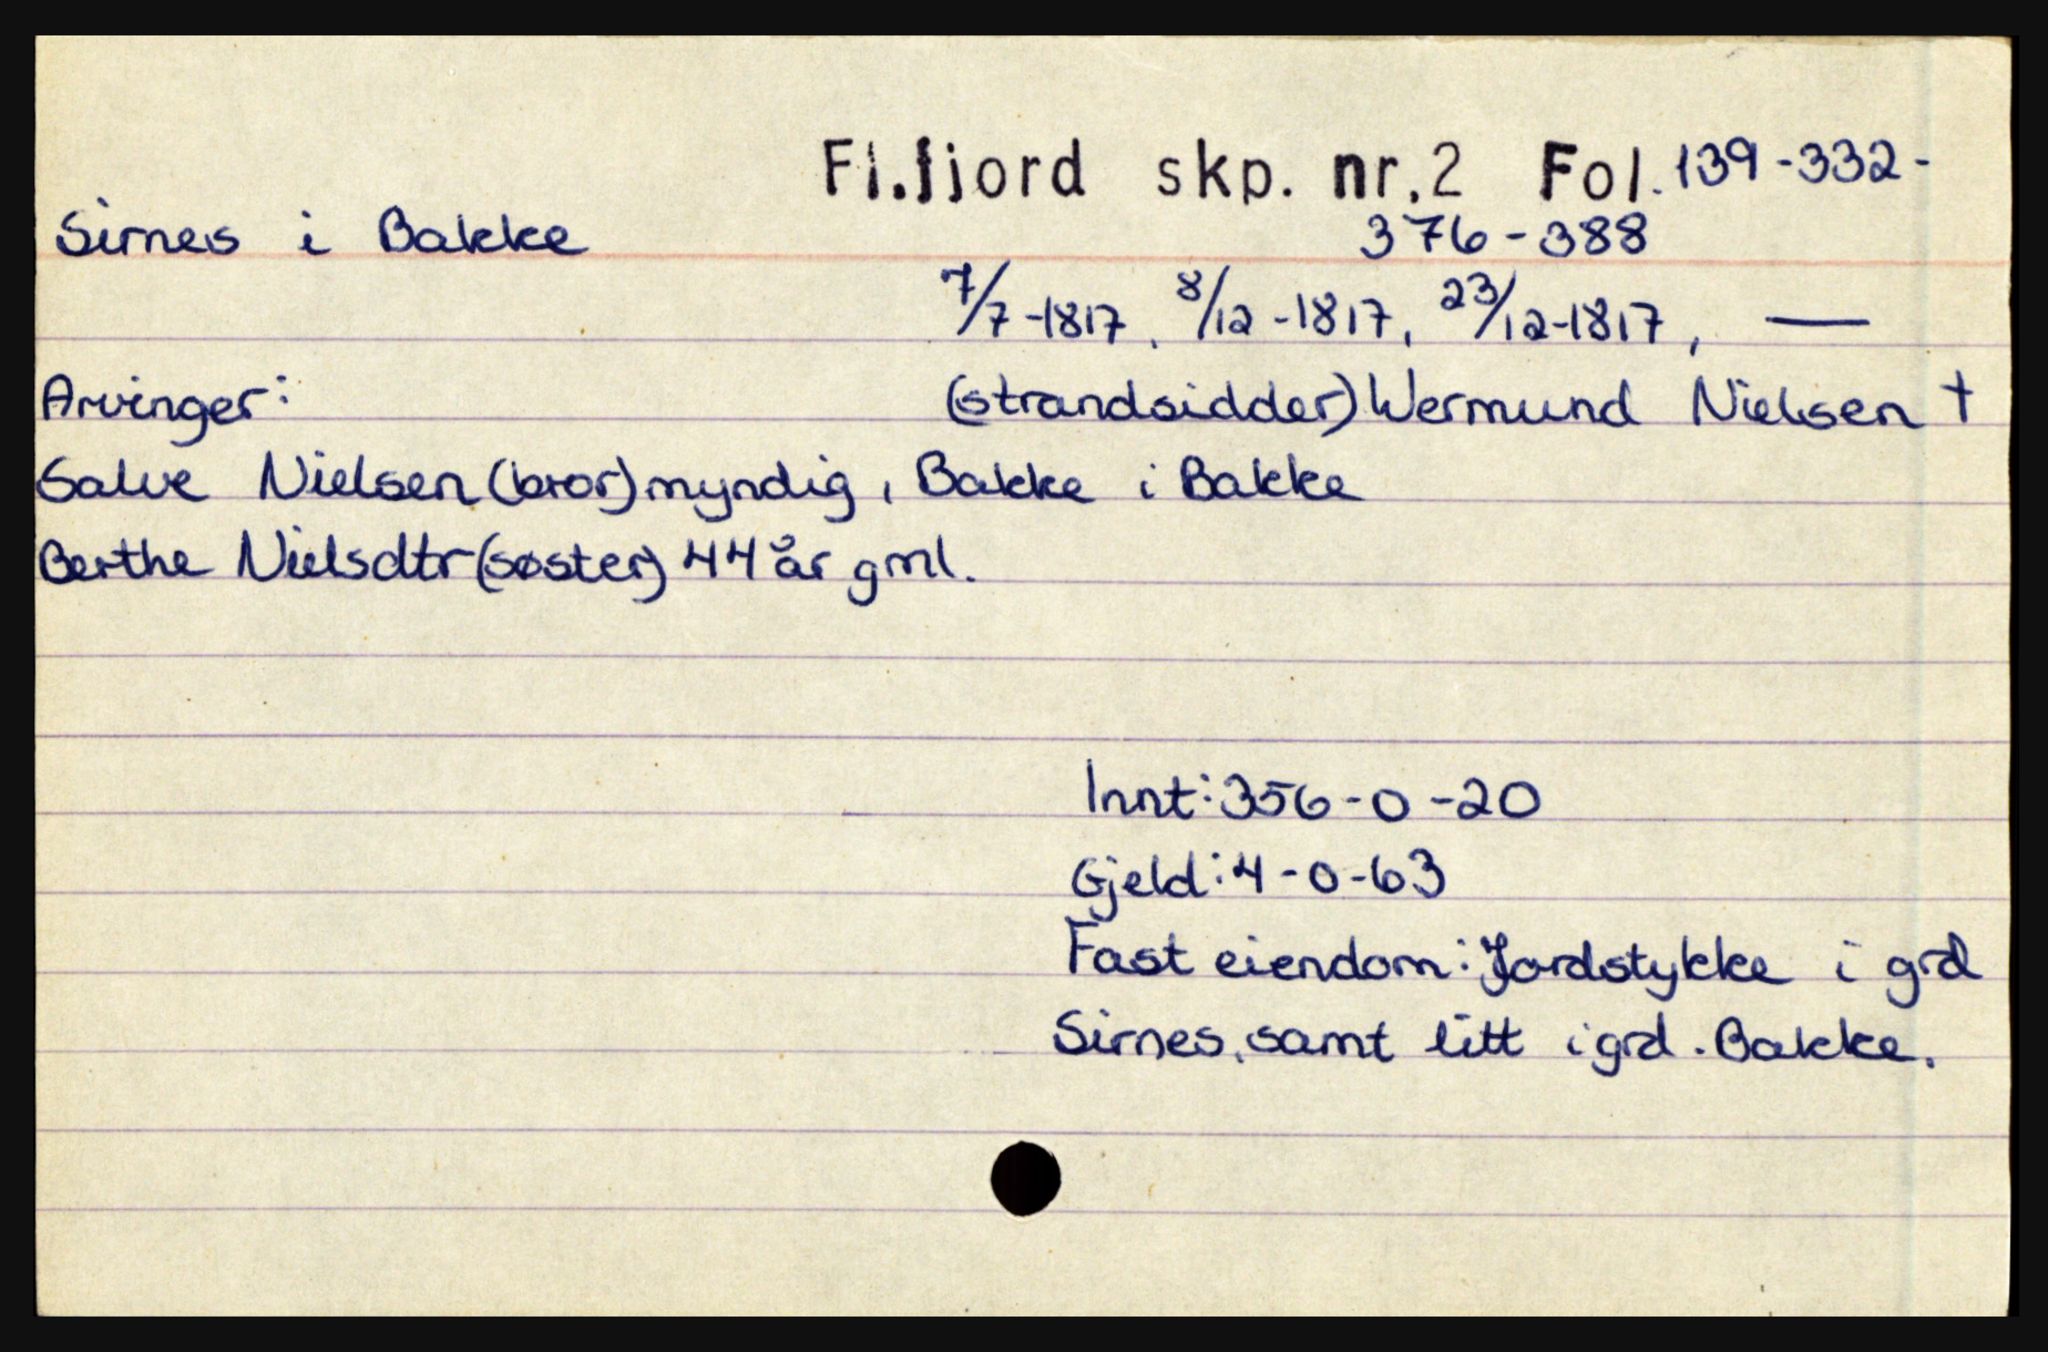 Fl.fjord skp. nr. 2 Fol. 139-332-
Sirnes i Bakke 376-388
7/7-1817, 8/12-1817, 23/12-1817, —
Arvinger: (strandsidder) Wermund Nielsen †
Salve Nielsen (bror) myndig, Bakke i Bakke
Berthe Nielsdtr (søster) 44 år gml.
Innt: 356-0-20
Gjeld: 4-0-63
Fast eiendom: Jordstykke i grd
Sirnes, samt litt i grd. Bakke.